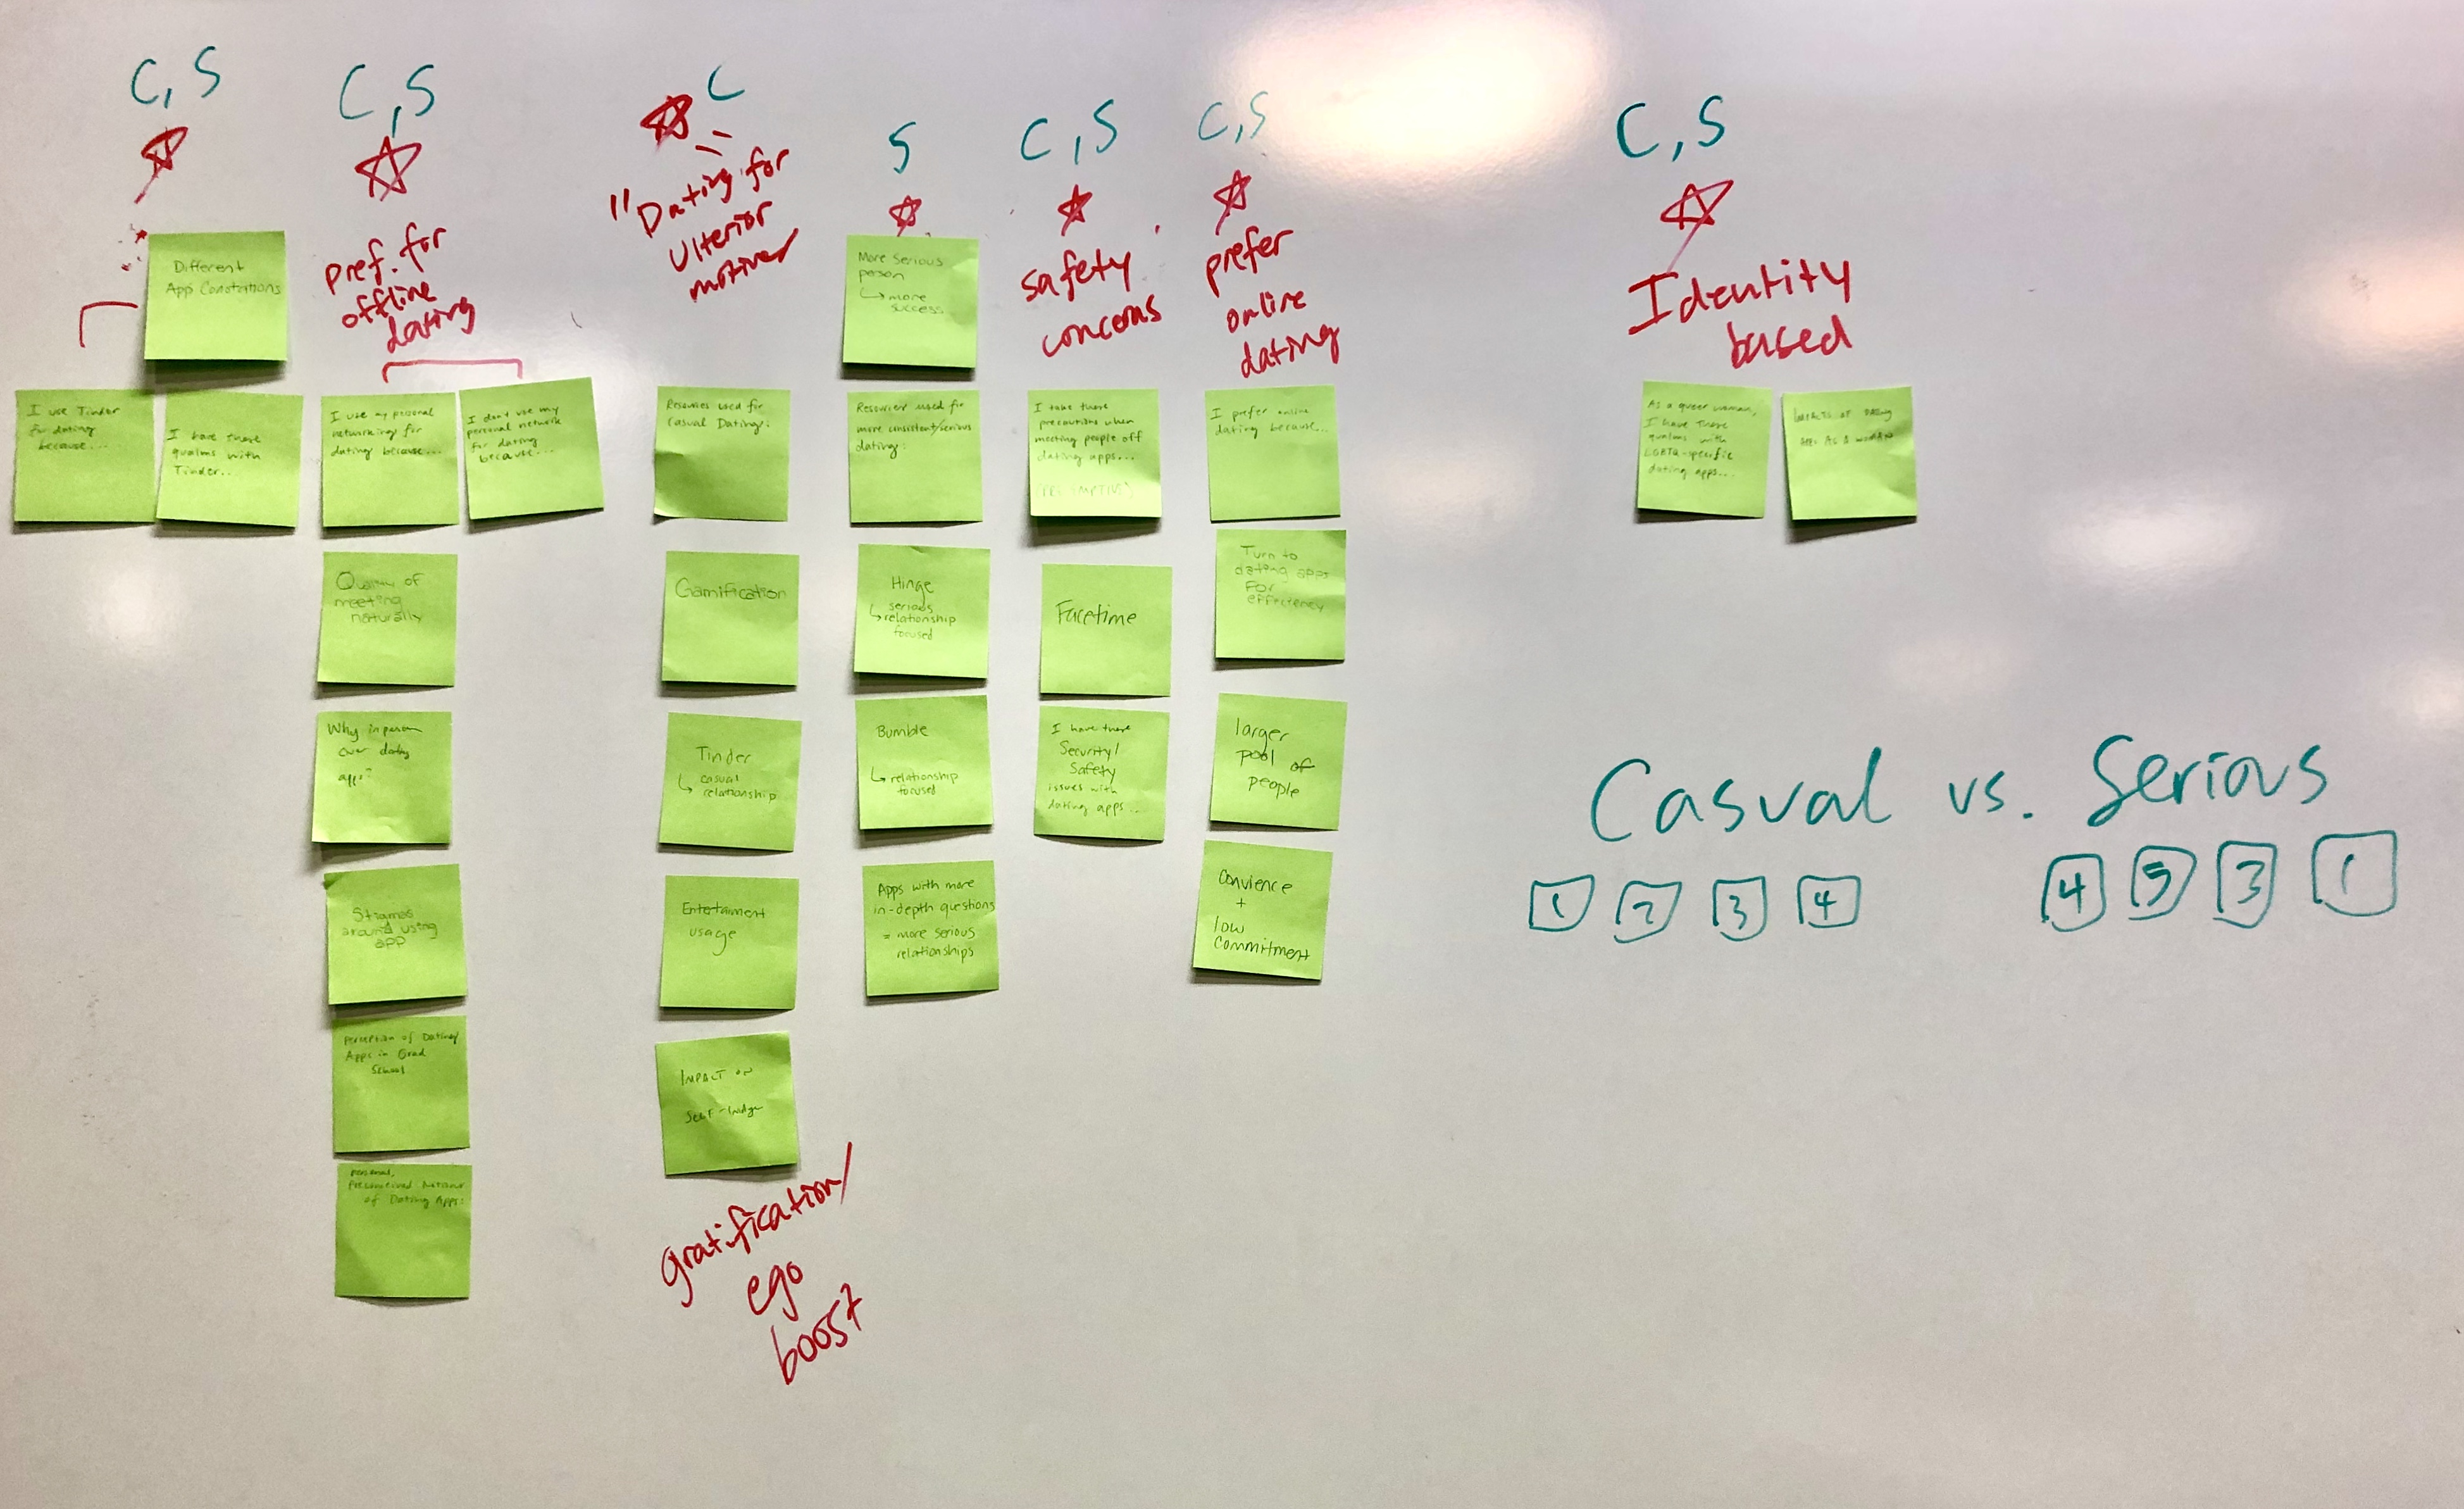 C, S
Different
App Conotations
I use Tinder
for dating
because...
I have these
qualms with
Tinder...
C, S
pref. for
offline
dating
I use my personal
networking for
dating because...
I don't use my
personal network
for dating
because...
Qualm of
meeting
naturally
Why in person
over dating
apps?
Stigmas
around using
app
Perception of Dating
Apps in Grad
School
Personal,
Preconceived Notions
of Dating Apps:
C
"Dating for
ulterior
motives
Resources used for
Casual Dating:
Gamification
Tinder
↳ casual
relationship
Entertaiment
usage
IMPACT ON
SELF-image
gratification/
ego
boost
S
More Serious
person
↳ more
success
Resources used for
more consistent/serious
dating:
Hinge
↳ serious
relationship
focused
Bumble
↳ relationship
focused
Apps with more
in-depth questions
= more serious
relationships
C, S
safety
concerns
I take these
precautions when
meeting people off
dating apps...
(PRE-EMPTIVE)
Facetime
I have these
Security/
Safety
issues with
dating apps...
C, S
prefer
online
dating
I prefer online
dating because...
Turn to
dating apps
For
effectency
larger
pool of
people
Convience
+
low
commitment
C, S
Identity
based
As a queer woman,
I have these
qualms with
LGBTQ-specific
dating apps...
IMPACTS OF DATING
APPS AS A WOMAN
Casual vs. Serious
1 2 3 4 4 5 3 1